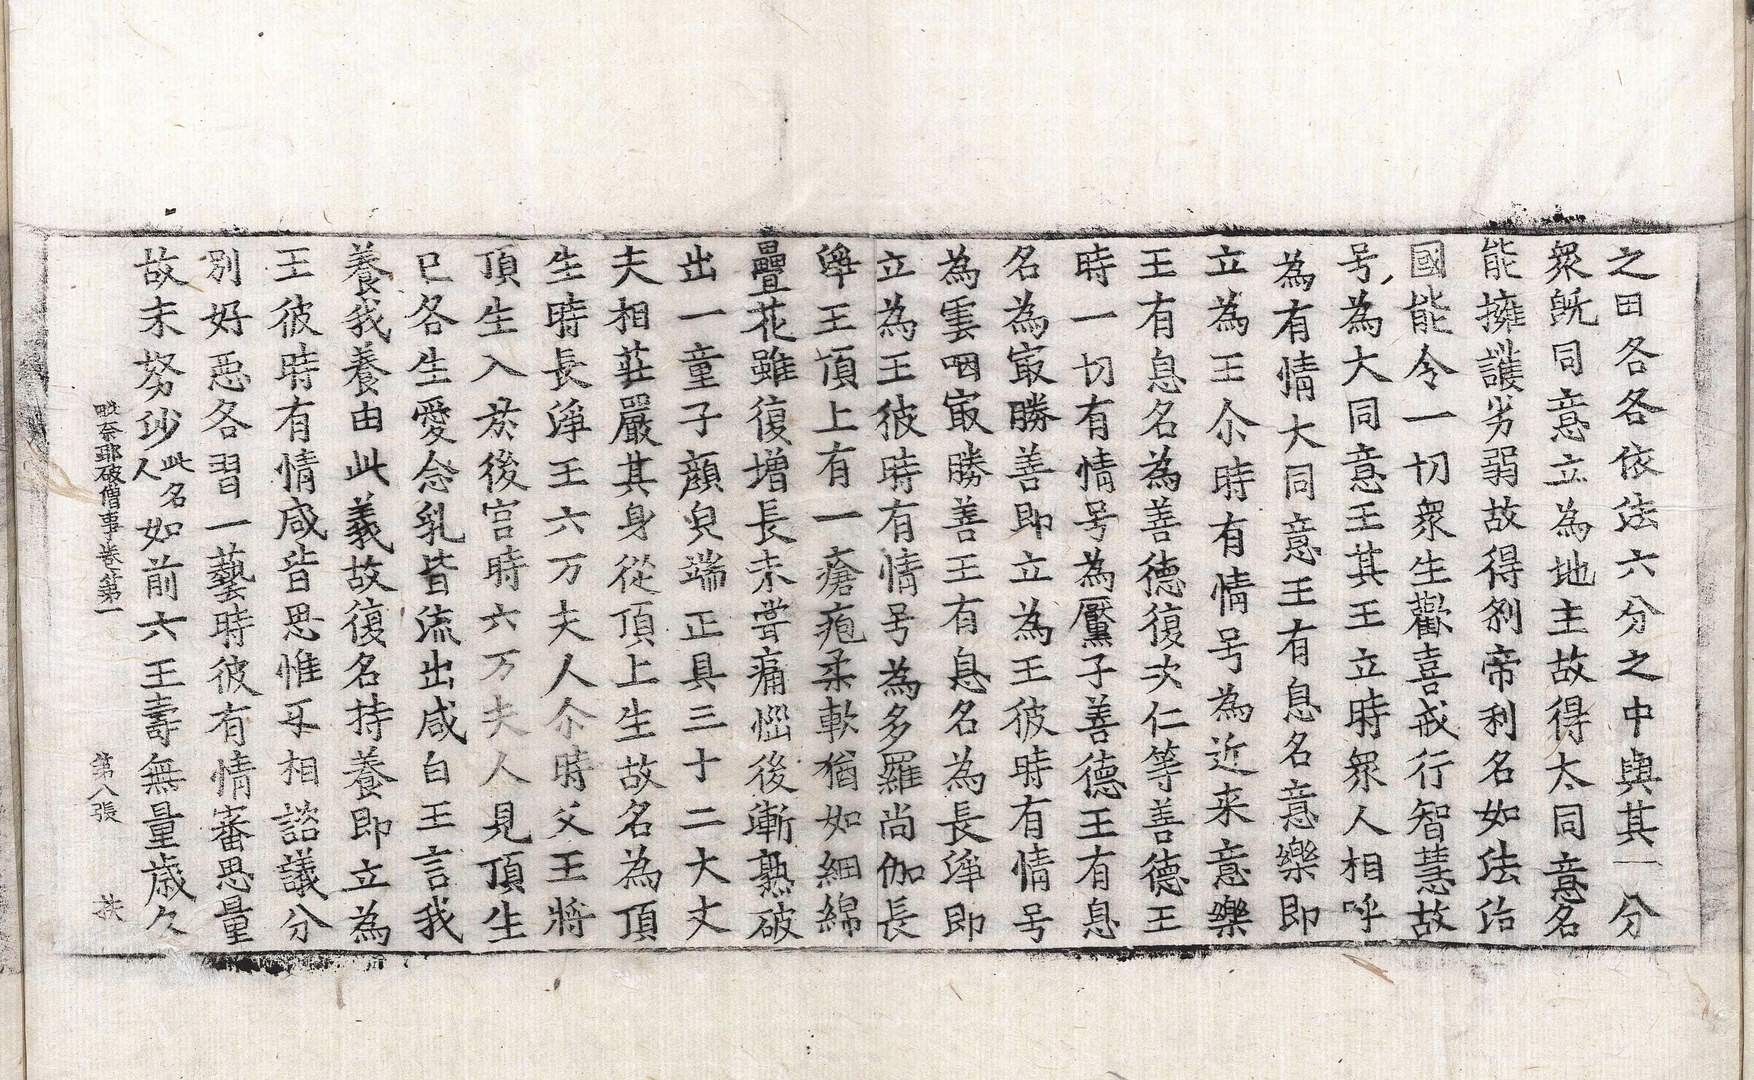 之田各各依法六分之中與其一分
衆旣同意立為地主故得太同意名
能擁護劣弱故得刹帝利名如法治
國能令一切衆生歡喜戒行智慧故
号為大同意王其王立時衆人相呼
為有情大同意王有息名意樂即
立為王尒時有情号為近来意樂
王有息名為善德復次仁等善德王
時一切有情号為黶子善德王有息
名為㝡勝善即立為王彼時有情号
為雲咽㝡勝善王有息名為長淨即
立為王彼時有情号為多羅尚伽長
淨王頂上有一瘡疱柔軟猶如細綿
疊花雖復增長未甞痛惱後漸熟破
出一童子顔皃端正具三十二大丈
夫相莊嚴其身從頂上生故名為頂
生時長淨王六万夫人尒時父王將
頂生入於後宫時六万夫人見頂生
已各生愛念乳皆流出咸白王言我
養我養由此義故復名持養即立為
王彼時有情咸皆思惟互相諮議分
別好惡各習一藝時彼有情審思量
故未努沙此名人如前六王壽無量歲久
毗奈耶破僧事卷第一 第八張 扶